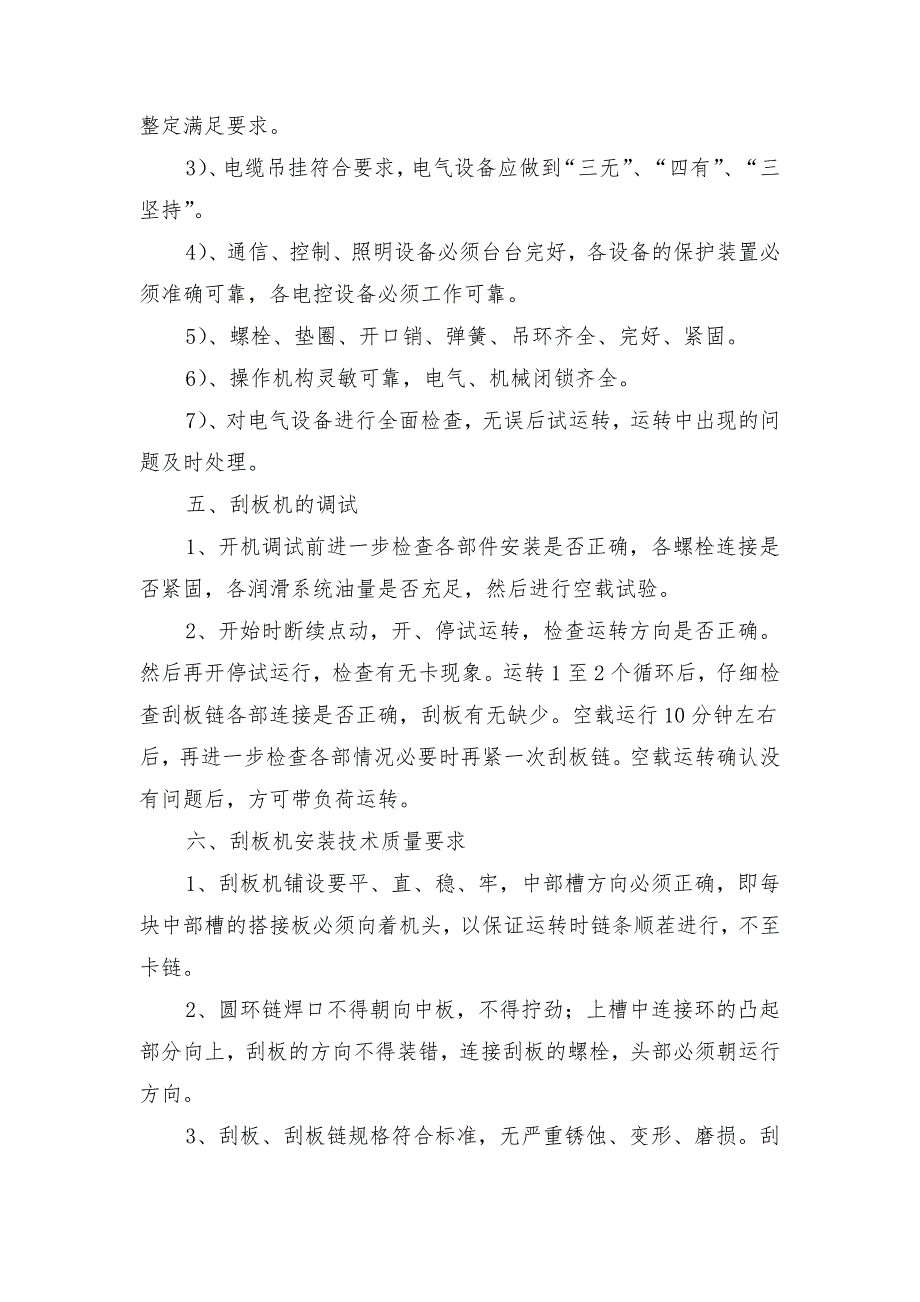 整定满足要求。
3)、电缆吊挂符合要求，电气设备应做到“三无”、“四有”、“三
坚持”。
4)、通信、控制、照明设备必须台台完好，各设备的保护装置必
须准确可靠，各电控设备必须工作可靠。
5)、螺栓、垫圈、开口销、弹簧、吊环齐全、完好、紧固。
6)、操作机构灵敏可靠，电气、机械闭锁齐全。
7)、对电气设备进行全面检查，无误后试运转，运转中出现的问
题及时处理。
五、刮板机的调试
1、开机调试前进一步检查各部件安装是否正确，各螺栓连接是
否紧固，各润滑系统油量是否充足，然后进行空载试验。
2、开始时断续点动，开、停试运转，检查运转方向是否正确。
然后再开停试运行，检查有无卡现象。运转1至2个循环后，仔细检
查刮板链各部连接是否正确，刮板有无缺少。空载运行10分钟左右
后，再进一步检查各部情况必要时再紧一次刮板链。空载运转确认没
有问题后，方可带负荷运转。
六、刮板机安装技术质量要求
1、刮板机铺设要平、直、稳、牢，中部槽方向必须正确，即每
块中部槽的搭接板必须向着机头，以保证运转时链条顺茬进行，不至
卡链。
2、圆环链焊口不得朝向中板，不得拧劲；上槽中连接环的凸起
部分向上，刮板的方向不得装错，连接刮板的螺栓，头部必须朝运行
方向。
3、刮板、刮板链规格符合标准，无严重锈蚀、变形、磨损。刮